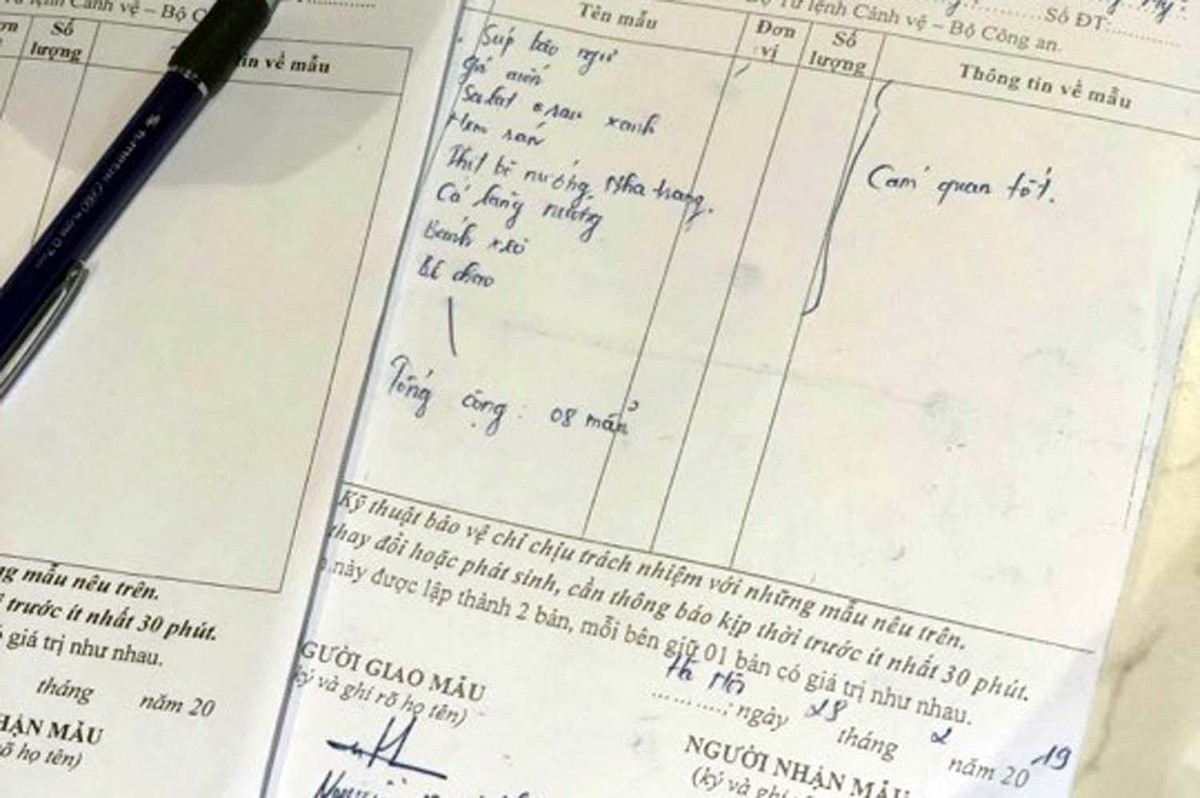 Số ĐT:
Bộ Tư lệnh Cảnh vệ – Bộ Công an.
Tên mẫu
Đơn vị
Số lượng
Thông tin về mẫu
Súp bào ngư
Gỏi cuốn
Salat rau xanh
Nem rán
Thịt bò nướng Nha trang.
Cá lăng nướng
Bánh xèo
Bê chao
Tổng cộng: 08 mẫu
Cảm quan tốt.
Kỹ thuật bảo vệ chỉ chịu trách nhiệm với những mẫu nêu trên.
thay đổi hoặc phát sinh, cần thông báo kịp thời trước ít nhất 30 phút.
này được lập thành 2 bản, mỗi bên giữ 01 bản có giá trị như nhau.
Hà Nội, ngày 28 tháng 2 năm 2019
GƯỜI GIAO MẪU
ký và ghi rõ họ tên)
NGƯỜI NHẬN MẪU
(ký và ghi rõ họ tên)
lệnh Cảnh vệ – Bộ C
Số lượng
tin về mẫu
ng mẫu nêu trên.
trước ít nhất 30 phút.
giá trị như nhau.
tháng năm 20
HẬN MẪU
õ họ tên)